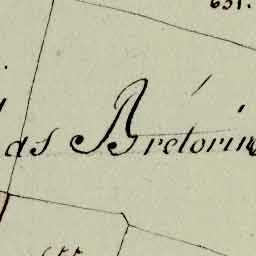 631.
as Bretórin